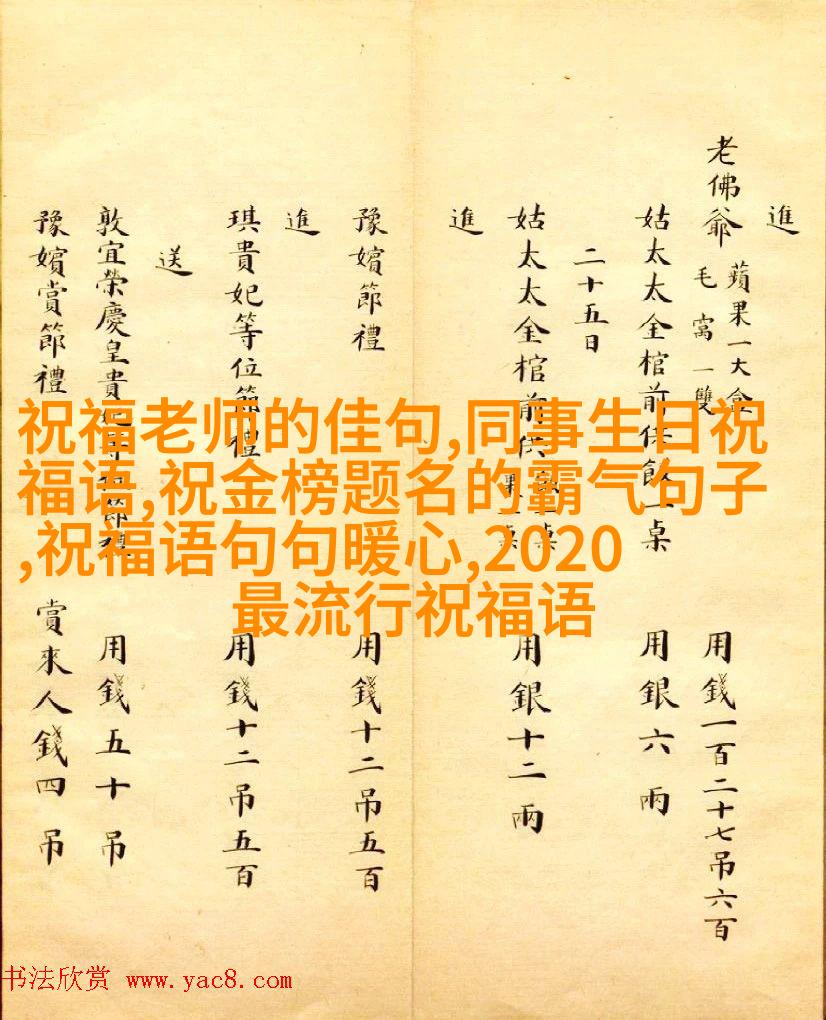 進
老佛爺 蘋果一大盒
毛窩一雙
用錢一百二十七吊六百
姑太太金棺前供飯一桌 用銀六兩
二十五日
姑太太金棺前供 桌 用銀十二兩
進
豫嬪節禮 用錢十二吊五百
進
琪貴妃等位節禮 用錢十二吊五百
送
敦宜榮慶皇貴妃 節禮 用錢五十吊
豫嬪賞節禮 賞來人錢四吊
祝福老师的佳句,同事生日祝
福语,祝金榜题名的霸气句子
,祝福语句句暖心,2020
最流行祝福语
书法欣赏 www.yac8.com